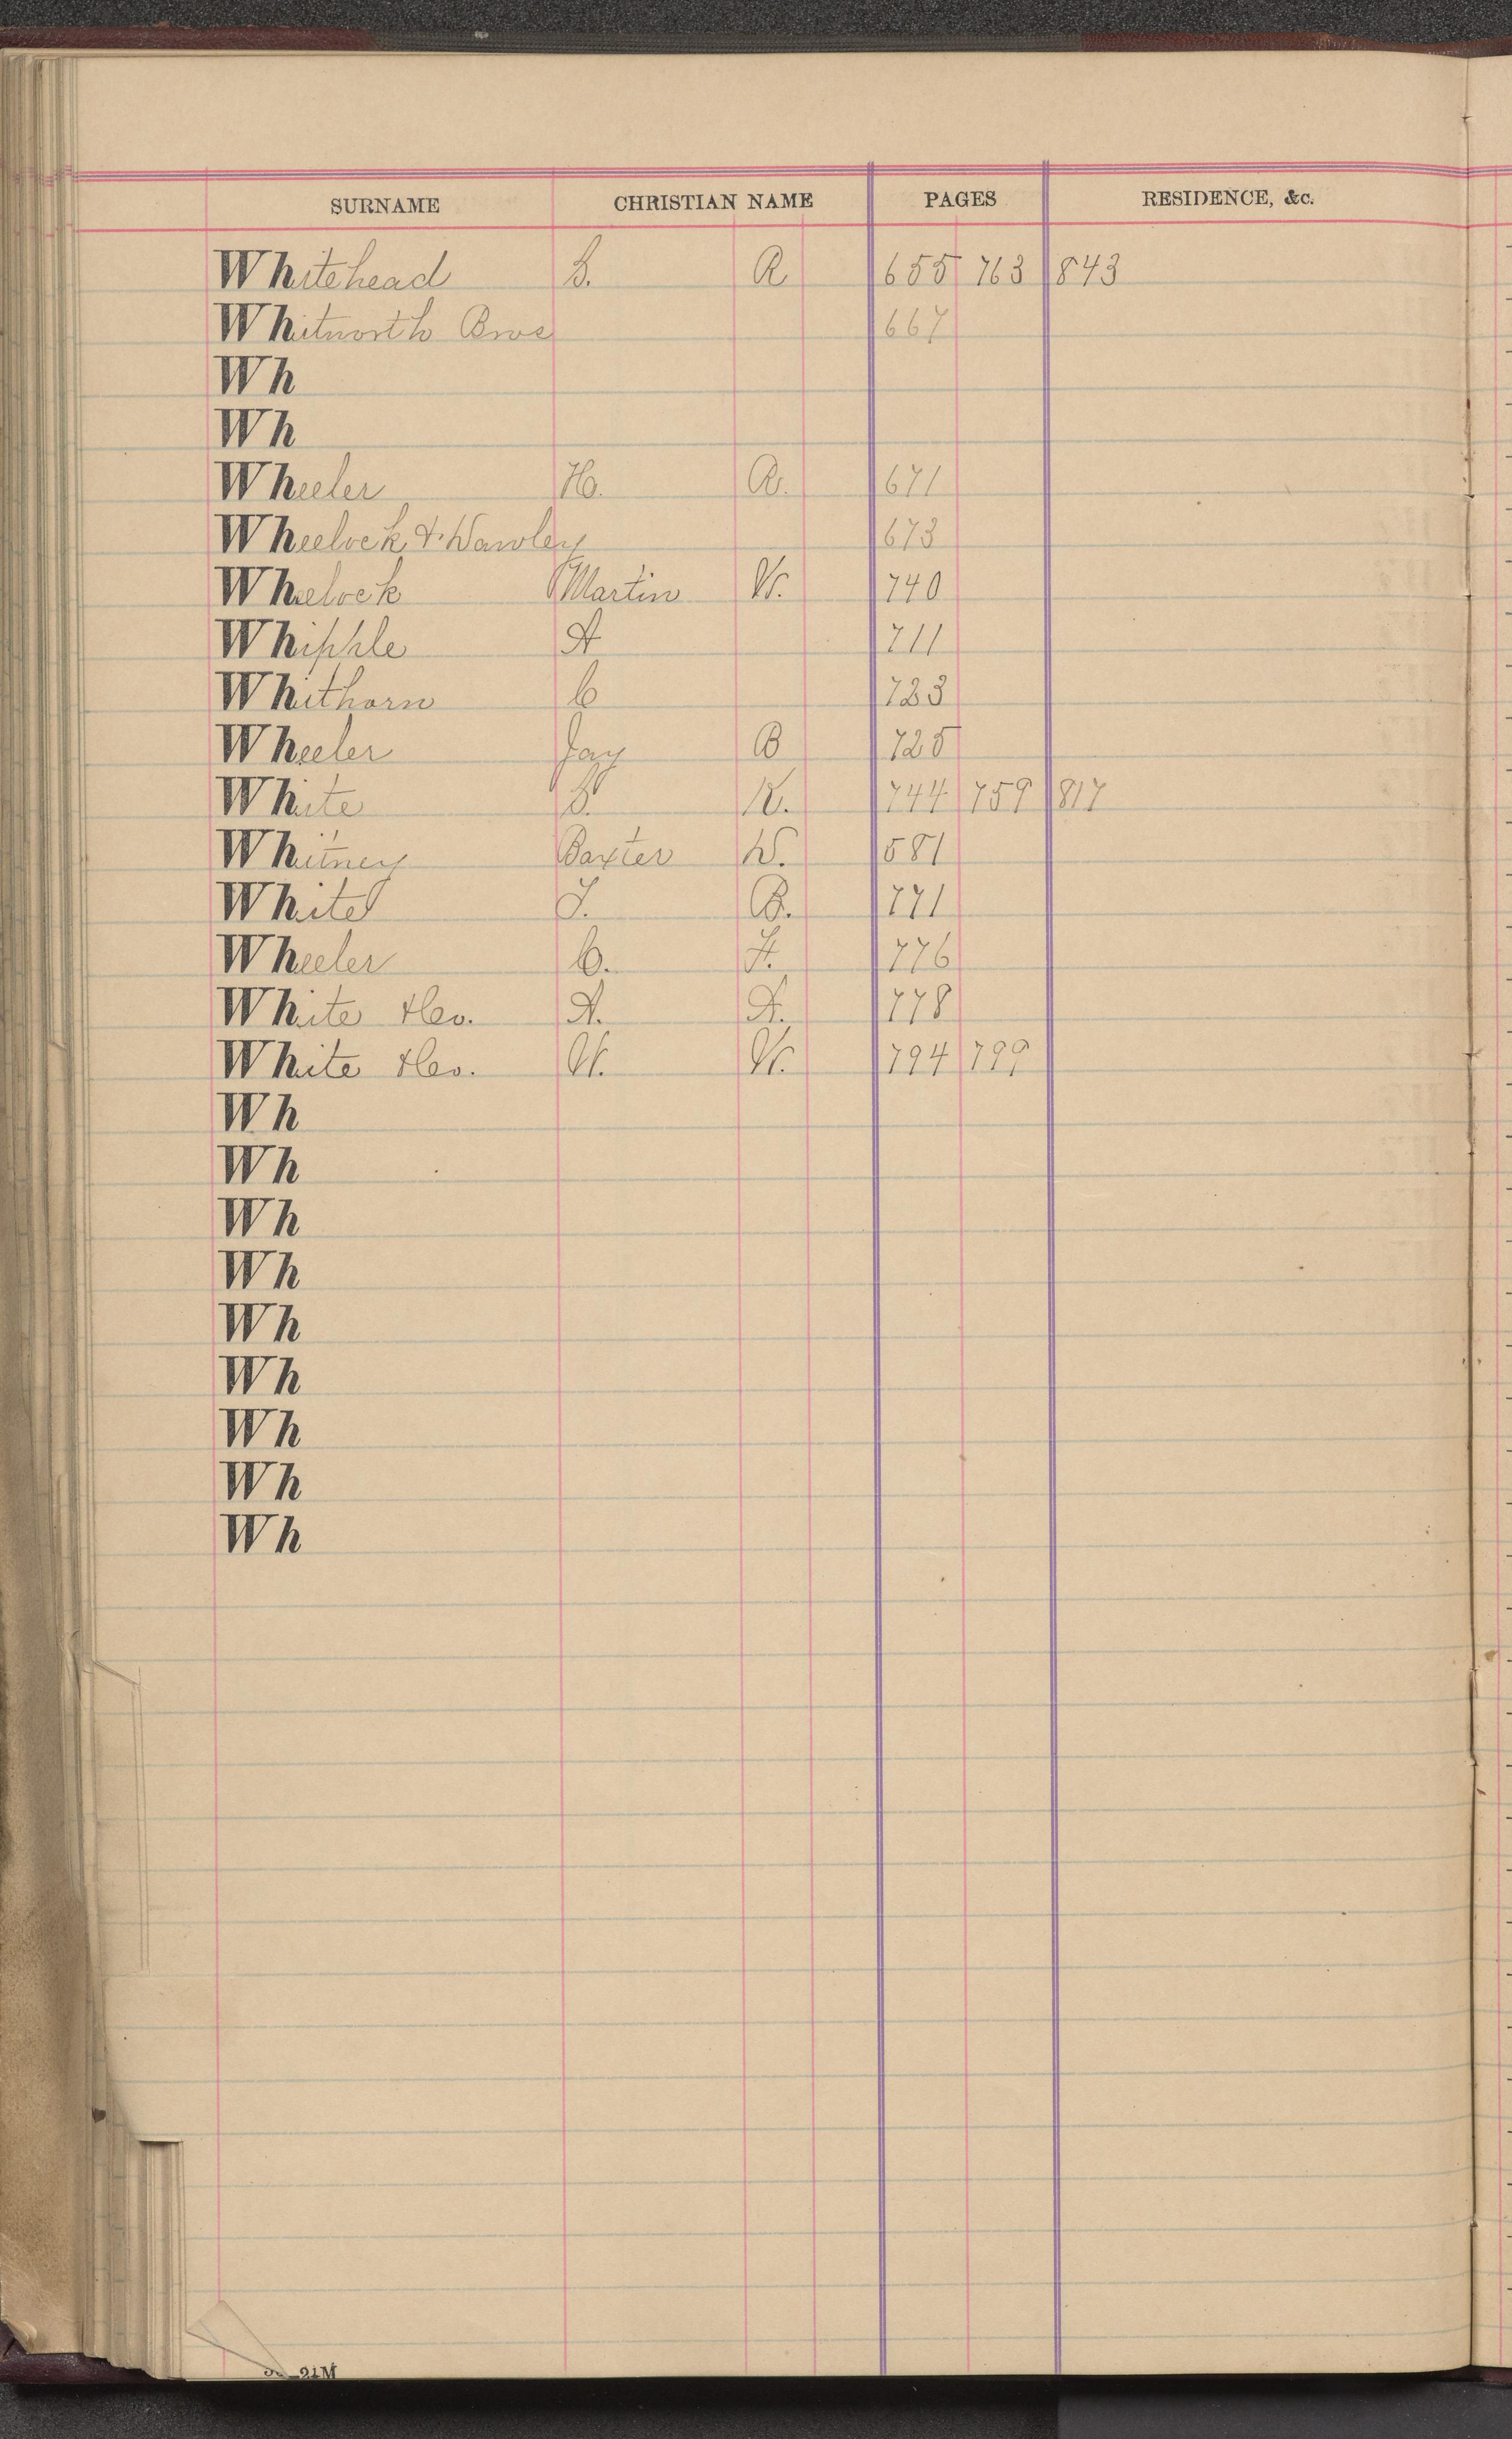 SURNAME CHRISTIAN NAME PAGES RESIDENCE, &c.
Whitehead S. R 655 763 843
Whitworth Bros 667
Wh
Wh
Wheeler H. R. 671
Wheelock & Hawley 673
Wheelock Martin W. 740
Whipple A 711
Whithorn C 723
Wheeler Jay B 725
White S. K. 744 759 817
Whitney Baxter W. 581
White J. B. 771
Wheeler C. F. 776
White &Co. A. A. 778
White &Co. W. W. 794 799
Wh
Wh
Wh
Wh
Wh
Wh
Wh
Wh
Wh
21M